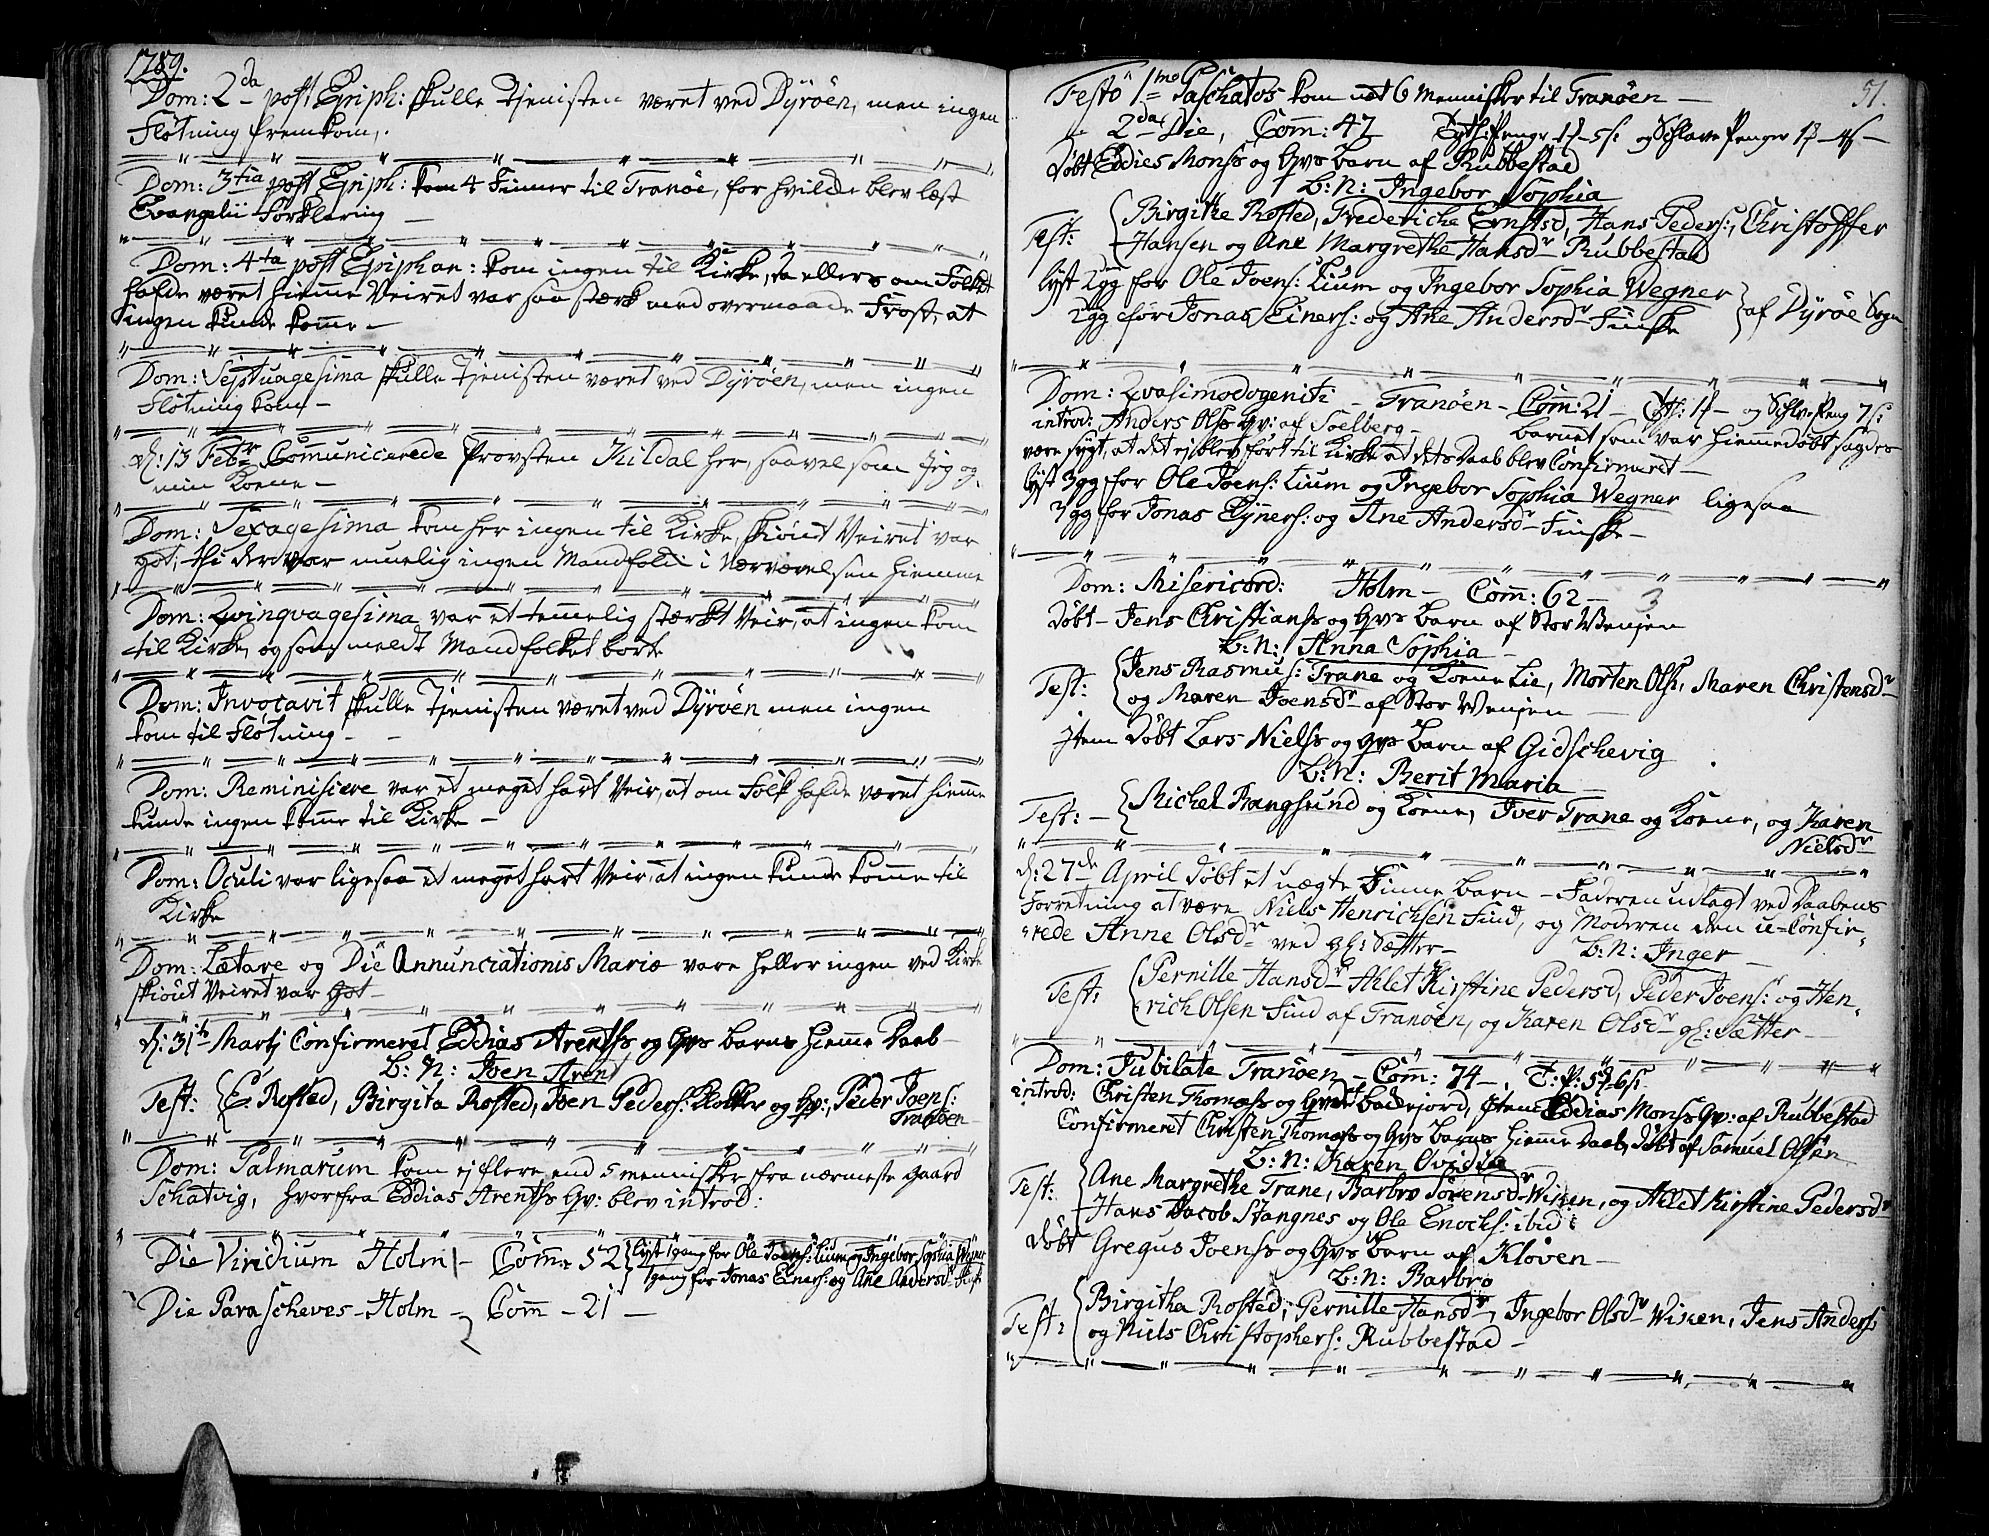 1789.
Dom: 2da post Epiph: skulle Tjenisten været ved Dyröen, men ingen
Fløtning fremkom,.
Dom: 3tia post Epiph: kom 4 Finner til Tranöe, for hvilde blev læst
Evangelii Forklaring —
Dom: 4ta post Epiphan: kom ingen til Kirke, da ellers om Folket
hafde været hieme Veiret var saa stærk med overmaade Frost, at
ingen kunde kome —
Dom: Septuagesima skulle Tjenisten været ved Dyröen, men ingen
Fløtning kom —
d: 13 Febr Comunicerede Provsten Kildal her, saavel som jeg og
min Kone —
Dom: Sexagesima kom her ingen til Kirke, skiönt Veiret var
got, thi der var muelig ingen Mandfolk i Nærværelsen hiemme
Dom: Qvinqvagesima var et temelig stærkt Veir, at ingen kom
til Kirke, og som meldt Mandfolket borte
Dom: Invocavit skulle Tjenisten været ved Dyröen men ingen
kom til Fløtning —
Dom: Reminiscere var et meget hart Veir, at om Folk hafde været hieme
kunde ingen kome til Kirke —
Dom: Oculi var ligesaa et meget hart Veir, at ingen kunde kome til
Kirke
Dom: Lætare og Die Annunciationis Mariæ vare heller ingen ved Kirke
skiönt Veiret var got —
d: 31te Martj Confirmeret Eddias Arentss og Hvs barns hieme Daab
B: N: Joen Arent
Test: E. Rosted, Birgita Rosted, Joen Peders: Klokker og Hv:, Peder Joens:
Tranöen
Dom: Palmarum kom ej flere end 5 mennisker fra nærmeste gaard
Schatvig, hvorfra Eddias Arentss Hv: blev introd:
Die Viridium Holm — Com: 52 lyst 1gang for Ole Joens: Lium og Ingebor Sophia Wegner
1gang for Jonas Einers: og Ane Andersdr Finske
Die Parascheves — Holm — Com — 21 —
51.
Festo 1mo Paschatos kom næt 6 Mennisker til Tranöen —
2da Die, Com: 47 og Schlave Penger
döbt Eddies Monss og Hvs Barn af Rubbestad
B: N: Ingebor Sophia
Test: Birgithe Rosted, Frederiche Ernstsd, Hans Peders:, Christoffer
Hansen og Ane Margrethe Hansdr Rubbestad
lyst 2gg for Ole Joens: Lium og Ingebor Sophia Wegner
2gg for Jonas Einers: og Ane Andersdr Finske af Dyröe Sogn
Dom: Qvasimodogeniti — Tranöen — Com: 21 — og Schlv: Peng 7s:
introd: Anders Olss Hv: af Soelberg — barnet som var hiemedöbt sagdes
være sygt, at det ej blev fört til Kirke at dets Daab blev Confirmeret —
lyst 3gg for Ole Joens: Lium og Ingebor Sophia Wegner ligesaa
3gg for Jonas Ejners: og Ane Andersdr Finske —
Dom: Misericord: Holm — Com: 62 —
döbt — Jens Christianss og Hvs barn af Stor Wenjen
B: N: Anna Sophia —
Test: Jens Rasmus: Trane og Kone Lie, Morten Ols:, Maren Christensdr
og Maren Joensdr af Stor Wenjen —
Item döbt Lars Nielss og Hvs barn af Gidschevig
B: N: Berit Maria —
Test: — Michel Rangsund og Kone, Iver Trane og Kone, og Karen
Nielsdr
d: 27de April döbt et uægte Finne barn — Faderen udlagt ved Daabens
Forretning at være Niels Henrichsen Find, og Moderen den u-Confir-
rede Anne Olsdr ved gd: Sætter —
B: N: Inger —
Test: Pernille Hansdr Allet Kirstine Pedersd, Peder Joens: og Hen,
rich Olsen Find af Tranöen, og Karen Olsdr gd: Sætter —
Dom: Jubilate Tranöen — Com: 74 —
introd: Christen Thomæss og Item Eddias Monss Hv: af Rubbestad
Confirmeret Christen Thomæss og Hvs barns hieme Daab, döbt af Samuel Olsen
B: N: Karen Ovidia
Test: Ane Margrethe Trane, Barbro Sörensdr Wiken, og Allet Kirstine Pedersdr
Hans Jacob Stangnes og Ole Enochs: ibid:
döbt Gregus Joenss og Hvs Barn af Klöven —
B: N: Barbro
Test: Birgitha Rosted, Pernille Hansdr, Ingebor Olsdr Wiken, Jens Anderss
og Niels Christophers: Rubbestad —